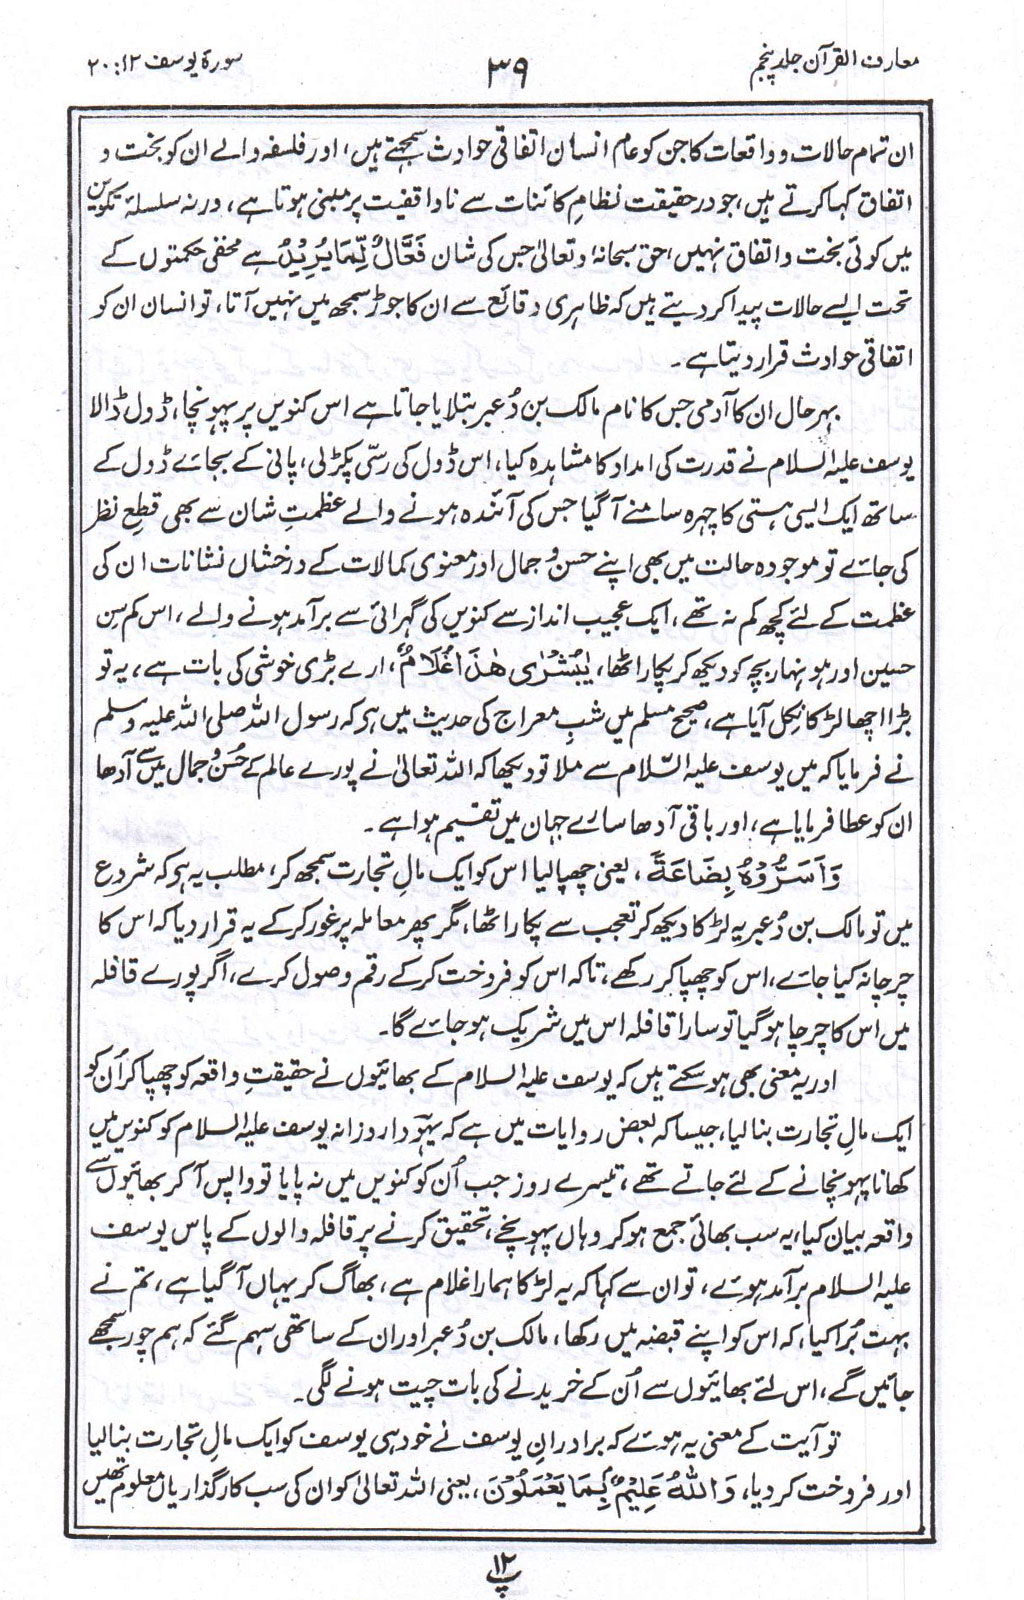 معارف القرآن جلد پنجم
۳۹
سورۃ یوسف ۱۲: ۲۰
ان تمام حالات و واقعات کا جن کو عام انسان اتفاقی حوادث سمجھتے ہیں، اور فلسفہ والے ان کو بخت و
اتفاق کہا کرتے ہیں، جو درحقیقت نظامِ کائنات سے ناواقفیت پر مبنی ہوتا ہے، ورنہ سلسلۂ تکوین
میں کوئی بخت و اتفاق نہیں، حق سبحانہٗ وتعالیٰ جس کی شان فَعَّالٌ لِّمَا یُرِیْدُ ہے مخفی حکمتوں کے
تحت ایسے حالات پیدا کر دیتے ہیں کہ ظاہری وقائع سے ان کا جوڑ سمجھ میں نہیں آتا، تو انسان ان کو
اتفاقی حوادث قرار دیتا ہے۔
بہرحال ان کا آدمی جس کا نام مالک بن دُعبر بتلایا جاتا ہے اس کنویں پر پہونچا، ڈول ڈالا
یوسف علیہ السلام نے قدرت کی امداد کا مشاہدہ کیا، اس ڈول کی رسّی پکڑ لی، پانی کے بجائے ڈول کے
ساتھ ایک ایسی ہستی کا چہرہ سامنے آگیا جس کی آئندہ ہونے والے عظمتِ شان سے بھی قطع نظر
کی جائے تو موجودہ حالت میں بھی اپنے حسن و جمال اور معنوی کمالات کے درخشاں نشانات ان کی
عظمت کے لئے کچھ کم نہ تھے، ایک عجیب انداز سے کنویں کی گہرائی سے برآمد ہونے والے، اس کم سِن
حسین اور ہونہار بچہ کو دیکھ کر پکار اٹھا، یٰبُشْرٰی ھٰذَا غُلَامٌ، ارے بڑی خوشی کی بات ہے، یہ تو
بڑا اچھا لڑکا نکل آیا ہے، صحیح مسلم میں شبِ معراج کی حدیث میں ہے کہ رسول اللہ صلی اللہ علیہ وسلم
نے فرمایا کہ میں یوسف علیہ السّلام سے ملا تو دیکھا کہ اللہ تعالیٰ نے پورے عالم کے حُسن و جمال میں سے آدھا
ان کو عطا فرمایا ہے، اور باقی آدھا سارے جہان میں تقسیم ہوا ہے۔
وَاَسَرُّوْہُ بِضَاعَۃً، یعنی چھپا لیا اس کو ایک مالِ تجارت سمجھ کر، مطلب یہ ہے کہ شروع
میں تو مالک بن دُعبر یہ لڑکا دیکھ کر تعجب سے پکار اٹھا، مگر پھر معاملہ پر غور کر کے یہ قرار دیا کہ اس کا
چرچا نہ کیا جائے، اس کو چھپا کر رکھے، تاکہ اس کو فروخت کر کے رقم وصول کرے، اگر پورے قافلہ
میں اس کا چرچا ہو گیا تو سارا قافلہ اس میں شریک ہو جائے گا۔
اور یہ معنی بھی ہو سکتے ہیں کہ یوسف علیہ السلام کے بھائیوں نے حقیقتِ واقعہ کو چھپا کر اُن کو
ایک مالِ تجارت بنا لیا، جیسا کہ بعض روایات میں ہے کہ یہودا روزانہ یوسف علیہ السلام کو کنویں میں
کھانا پہونچانے کے لئے جاتے تھے، تیسرے روز جب اُن کو کنویں میں نہ پایا تو واپس آ کر بھائیوں سے
واقعہ بیان کیا، یہ سب بھائی جمع ہو کر وہاں پہونچے، تحقیق کرنے پر قافلہ والوں کے پاس یوسف
علیہ السلام برآمد ہوئے، تو ان سے کہا کہ یہ لڑکا ہمارا غلام ہے، بھاگ کر یہاں آگیا ہے، تم نے
بہت بُرا کیا، کہ اس کو اپنے قبضہ میں رکھا، مالک بن دُعبر اور ان کے ساتھی سہم گئے کہ ہم چور سمجھے
جائیں گے، اس لئے بھائیوں سے اُن کے خریدنے کی بات چیت ہونے لگی۔
تو آیت کے معنی یہ ہوئے کہ برادرانِ یوسف نے خود ہی یوسف کو ایک مالِ تجارت بنا لیا
اور فروخت کر دیا، وَاللّٰہُ عَلِیْمٌ بِمَا یَعْمَلُوْنَ، یعنی اللہ تعالیٰ کو ان کی سب کارگذاریاں معلوم تھیں
۱۲
پ